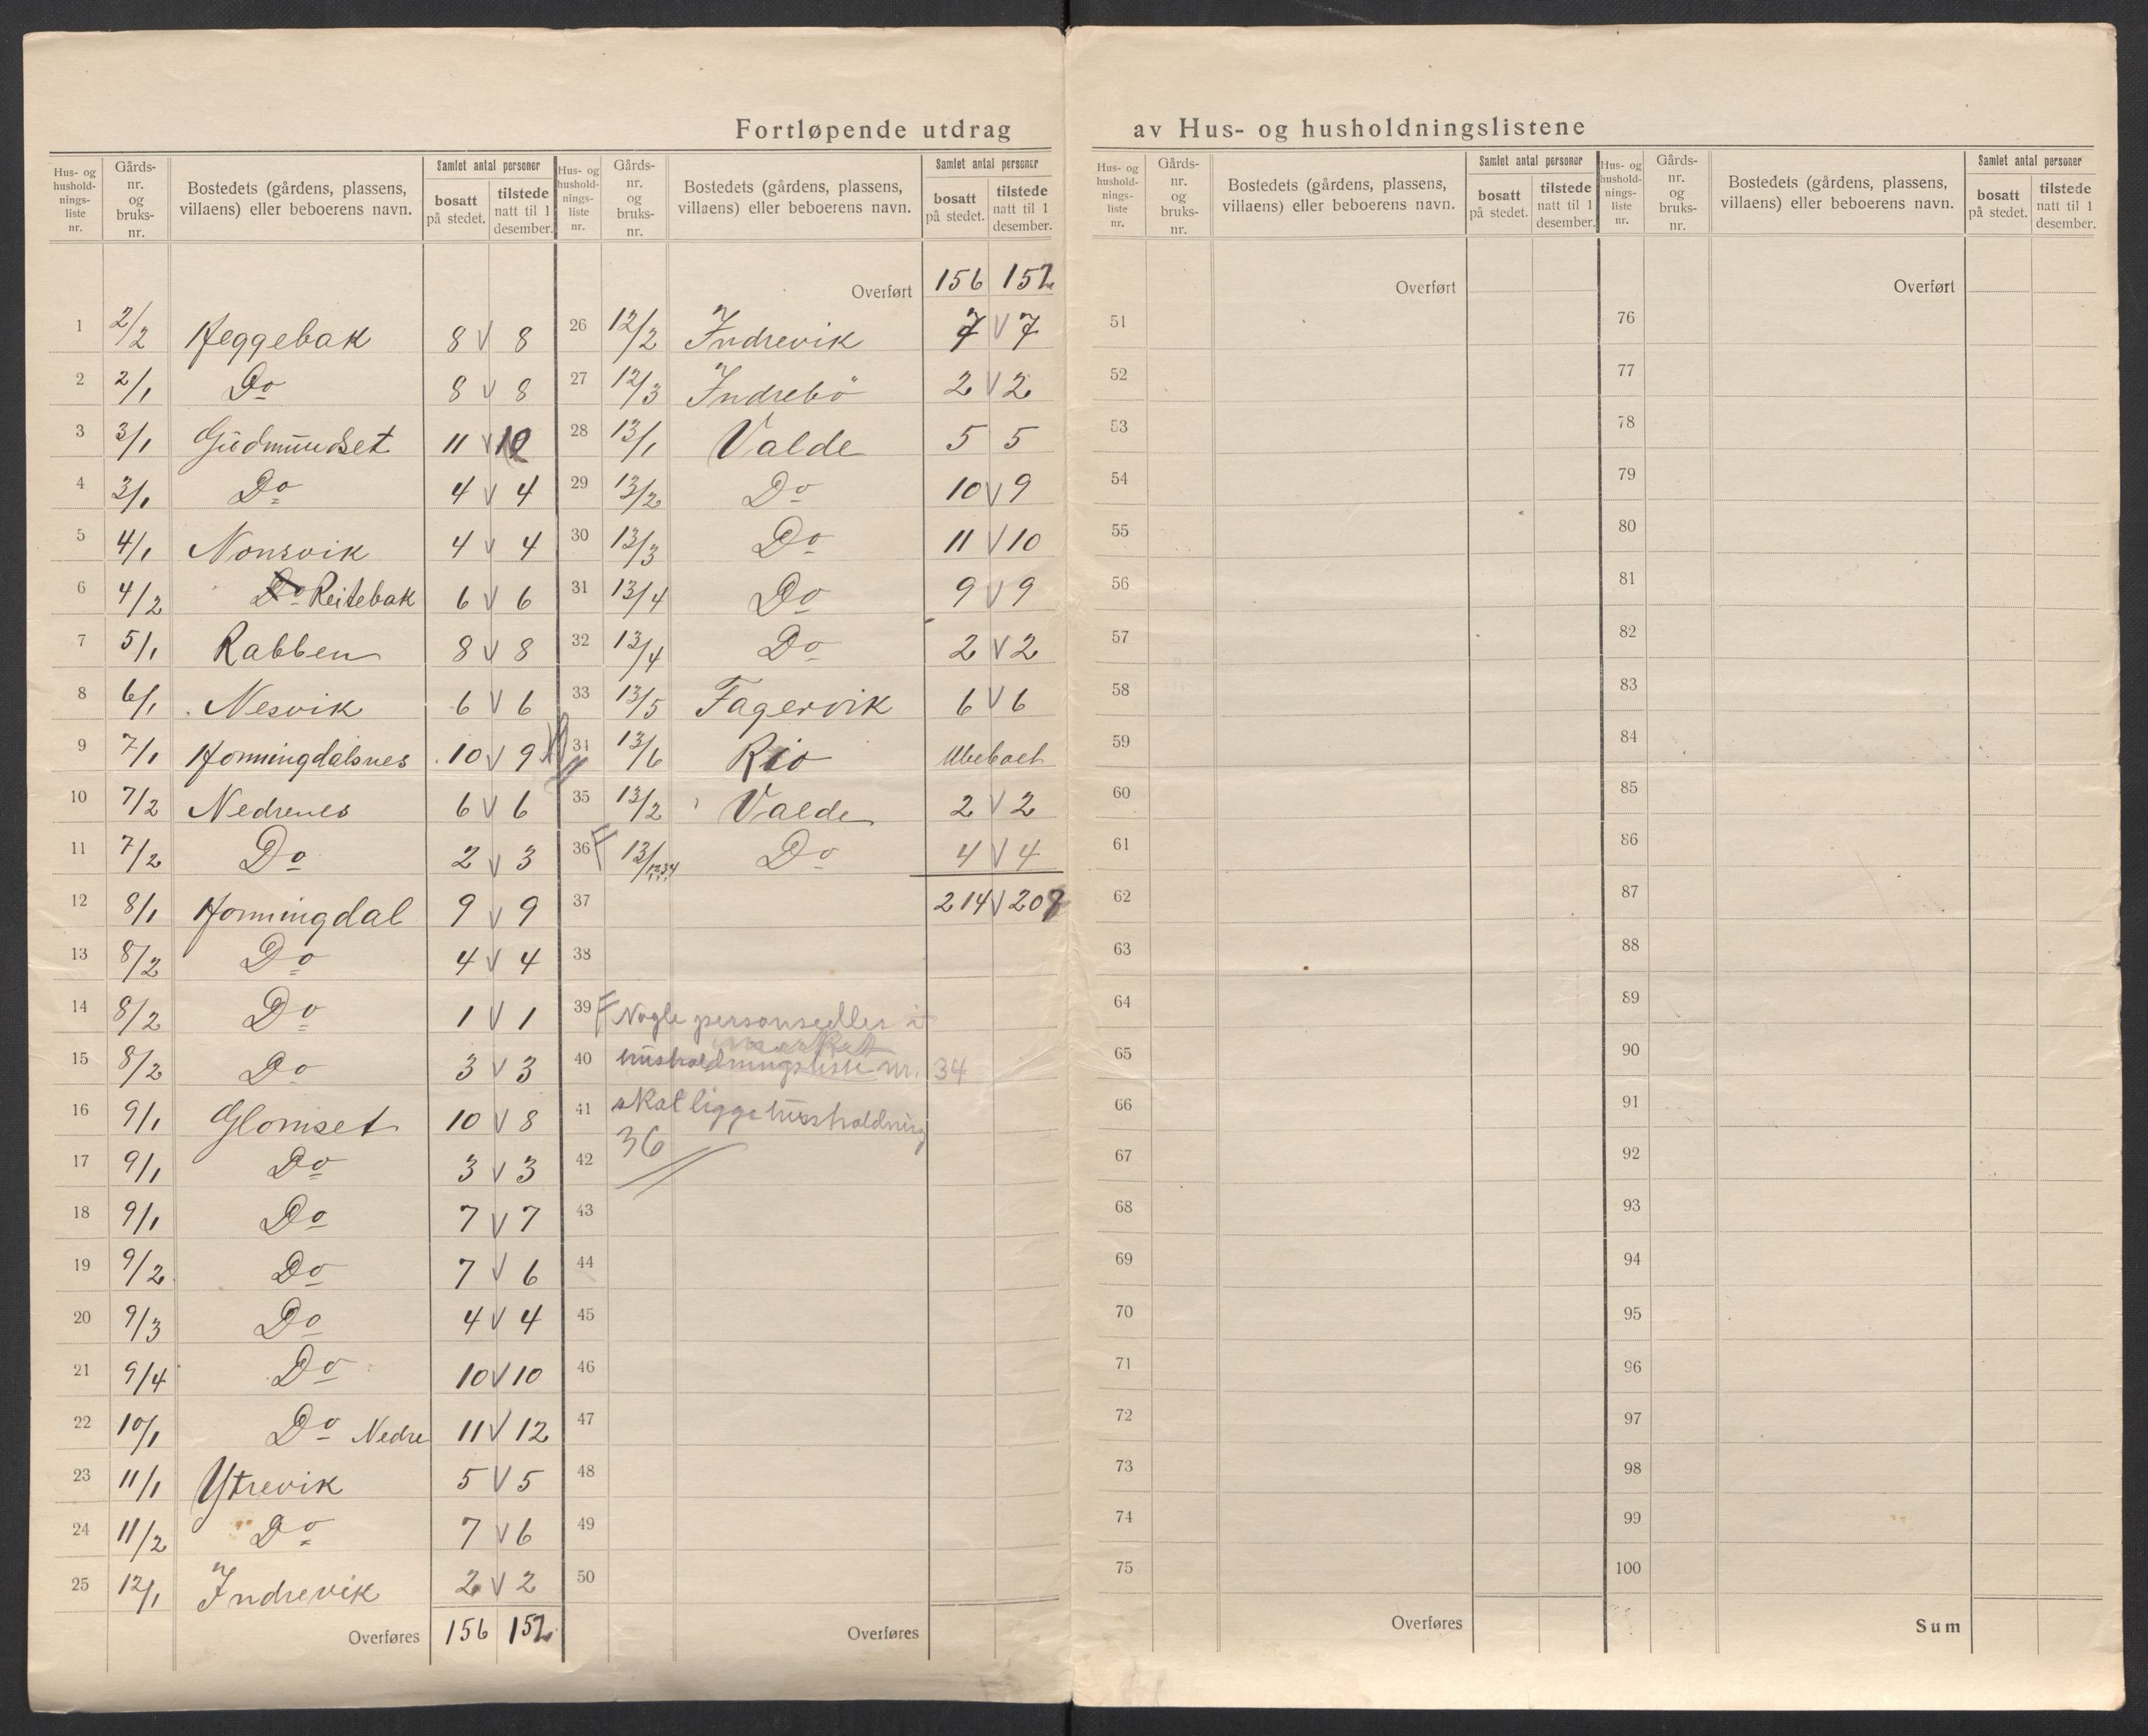 Fortløpende utdrag av Hus- og husholdningslistene
Hus- og husholdnings-liste nr. | Gårds-nr. og bruks-nr. | Bostedets (gårdens, plassens, villaens) eller beboerens navn. | Samlet antal personer | bosatt på stedet. | tilstede natt til 1 desember.
1 2/2 Heggebak 8 V 8
2 2/1 Do 8 V 8
3 3/1 Gudmundset 11 V 10
4 3/1 Do 4 V 4
5 4/1 Nonsvik 4 V 4
6 4/2 Do Reitebak 6 V 6
7 5/1 Rabben 8 V 8
8 6/1 Nesvik 6 V 6
9 7/1 Honningdalsnes 10 V 9
10 7/2 Nedrenes 6 V 6
11 7/2 Do 2 V 3
12 8/1 Honningdal 9 V 9
13 8/2 Do 4 V 4
14 8/2 Do 1 V 1
15 8/2 Do 3 V 3
16 9/1 Glomset 10 V 8
17 9/1 Do 3 V 3
18 9/1 Do 7 V 7
19 9/2 Do 7 V 6
20 9/3 Do 4 V 4
21 9/4 Do 10 V 10
22 10/1 Do Nedre 11 V 12
23 11/1 Ytrevik 5 V 5
24 11/2 Do 7 V 6
25 12/1 Indrevik 2 V 2
Overføres 156 152
Hus- og husholdnings-liste nr. | Gårds-nr. og bruks-nr. | Bostedets (gårdens, plassens, villaens) eller beboerens navn. | Samlet antal personer | bosatt på stedet. | tilstede natt til 1 desember.
Overført 156 152
26 12/2 Indrevik 7 V 7
27 12/3 Indrebö 2 V 2
28 13/1 Valde 5 5
29 13/2 Do 10 V 9
30 13/3 Do 11 V 10
31 13/4 Do 9 V 9
32 13/4 Do 2 V 2
33 13/5 Fagervik 6 V 6
34 13/6 Rio Ubeboet
35 13/2 Valde 2 V 2
36 13/1234 Do 4 V 4
37 214 V 208
38
39 Nogle personsedler i
merket
40 husholdningsliste nr. 34
41 skal ligge husholdning
42 36
43
44
45
46
47
48
49
50
Overføres
Hus- og husholdnings-liste nr. | Gårds-nr. og bruks-nr. | Bostedets (gårdens, plassens, villaens) eller beboerens navn. | Samlet antal personer | bosatt på stedet. | tilstede natt til 1 desember.
Overført
51
52
53
54
55
56
57
58
59
60
61
62
63
64
65
66
67
68
69
70
71
72
73
74
75
Overføres
Hus- og husholdnings-liste nr. | Gårds-nr. og bruks-nr. | Bostedets (gårdens, plassens, villaens) eller beboerens navn. | Samlet antal personer | bosatt på stedet. | tilstede natt til 1 desember.
Overført
76
77
78
79
80
81
82
83
84
85
86
87
88
89
90
91
92
93
94
95
96
97
98
99
100
Sum